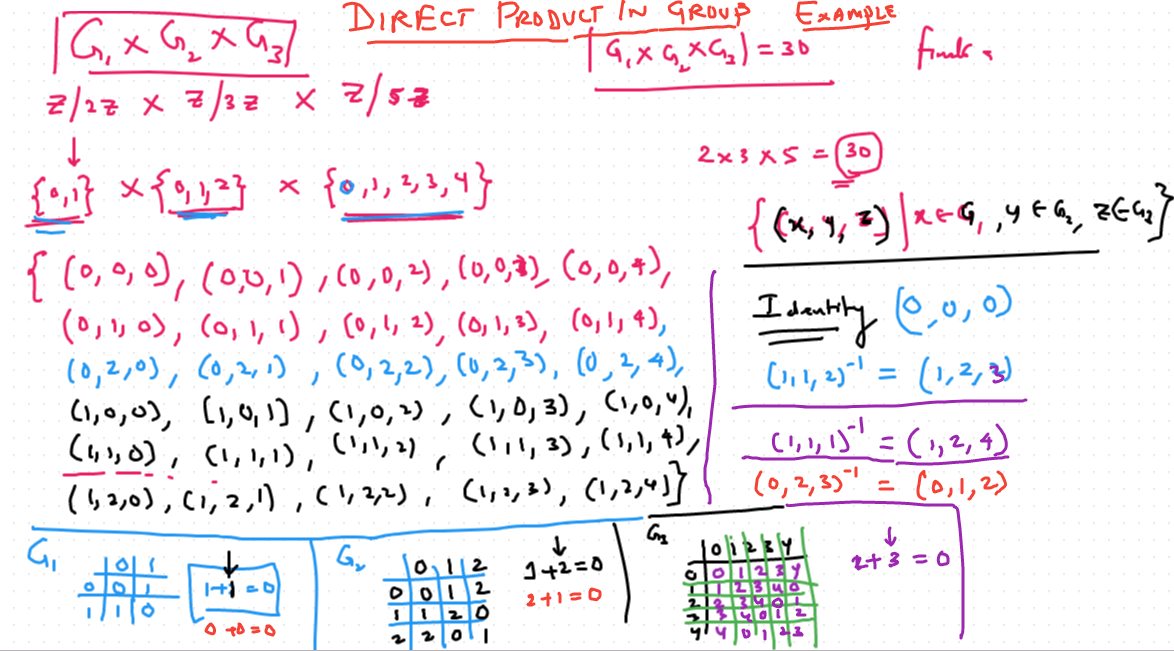 DIRECT PRODUCT IN GROUP EXAMPLE
|G₁ × G₂ × G₃|
|G₁ × G₂ × G₃| = 30
Z/2Z × Z/3Z × Z/5Z
↓
2 × 3 × 5 = 30
{0,1} × {0,1,2} × {0,1,2,3,4}
{(x, y, z) | x ∈ G₁, y ∈ G₂, z ∈ G₃}
{ (0,0,0), (0,0,1), (0,0,2), (0,0,3), (0,0,4),
(0,1,0), (0,1,1), (0,1,2), (0,1,3), (0,1,4),
(0,2,0), (0,2,1), (0,2,2), (0,2,3), (0,2,4),
(1,0,0), [1,0,1], (1,0,2), (1,0,3), (1,0,4),
(1,1,0), (1,1,1), (1,1,2), (1,1,3), (1,1,4),
(1,2,0), (1,2,1), (1,2,2), (1,2,3), (1,2,4)}
Identity (0,0,0)
(1,1,2)⁻¹ = (1,2,3)
(1,1,1)⁻¹ = (1,2,4)
(0,2,3)⁻¹ = (0,1,2)
G₁
0 1
0 0 1
1 1 0
↓
1+1=0
0+0=0
G₂
0 1 2
0 0 1 2
1 1 2 0
2 2 0 1
↓
1+2=0
2+1=0
G₃
0 1 2 3 4
0 0 1 2 3 4
1 1 2 3 4 0
2 2 3 4 0 1
3 3 4 0 1 2
4 4 0 1 2 3
↓
2+3=0